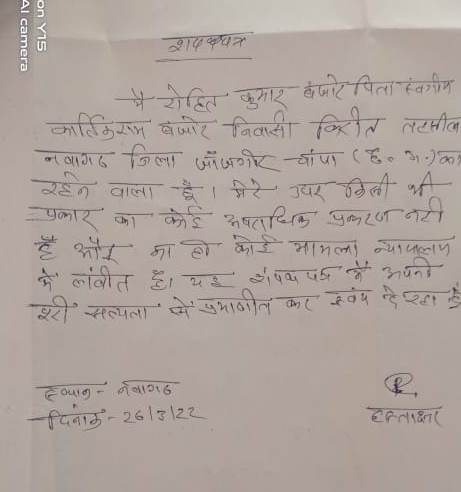 on Y15
AI camera
शपथपत्र
मै रोहित कुमार बंजारे पिता स्वर्गीय
कार्तिकराम बंजारे निवासी किरीत तहसील
नवागढ जिला जाँजगीर चांपा (छ० ग०) का
रहने वाला हूँ। मेरे उपर किसी भी
प्रकार का कोई अपराधिक प्रकरण नही
है और ना ही कोई मामला न्यायालय
में लंबीत है। यह शपथ पत्र मैं अपनी
पुरी सत्यता से प्रमाणीत कर स्वंय दे रहा हूँ
स्थान - नवागढ
दिनांक - 26/3/22
हस्ताक्षर